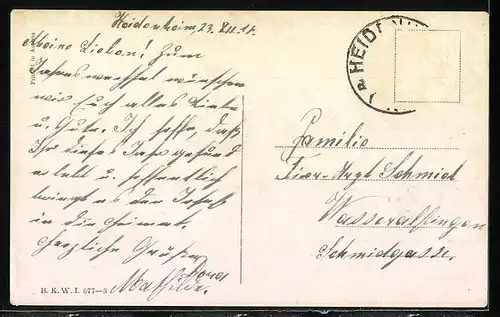 Heidenheim, 23. XII. 17.
Meine Lieben! Zum
Jahreswechsel wünschen
wir Euch alles Liebe
u. Gute. Ich hoffe, daß
Ihr dieses Jahr gesund
erlebt u. hoffentlich
bringt es der
in die Heimat.
Herzliche Grüße
Mathilde.
B. K. W. I. 677-3
HEID
Familie
Tier-Arzt Schmid
Wasseralfingen
Schmidgasse.